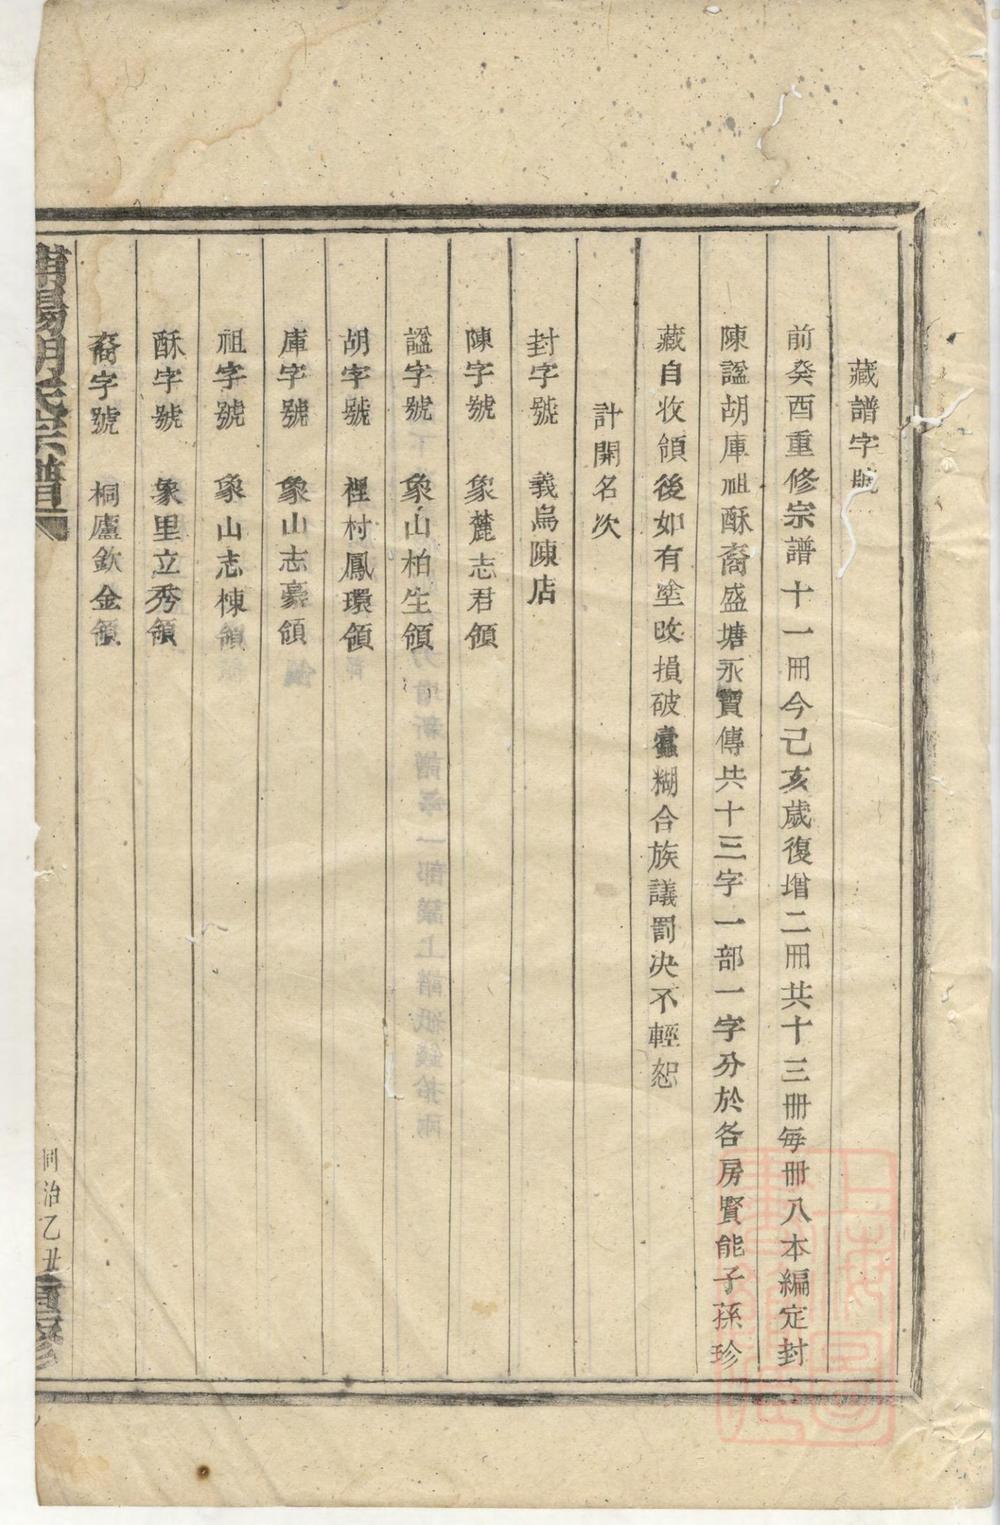 藏譜字號
前癸酉重修宗譜十一冊今己亥歲復增二冊共十三冊每冊八本編定封
陳諡胡庫祖酥裔盛塘永寶傳共十三字一部一字分於各房賢能子孫珍
藏自收領後如有塗改損破蠹糊合族議罰決不輕恕
計開名次
封字號 義烏陳店
陳字號 象麓志君領
諡字號 象山柏生領
胡字號 裡村鳳環領
庫字號 象山志豪領
祖字號 象山志棟領
酥字號 象里立秀領
裔字號 桐廬欽金領
浦陽胡氏宗譜
同治乙丑
重修